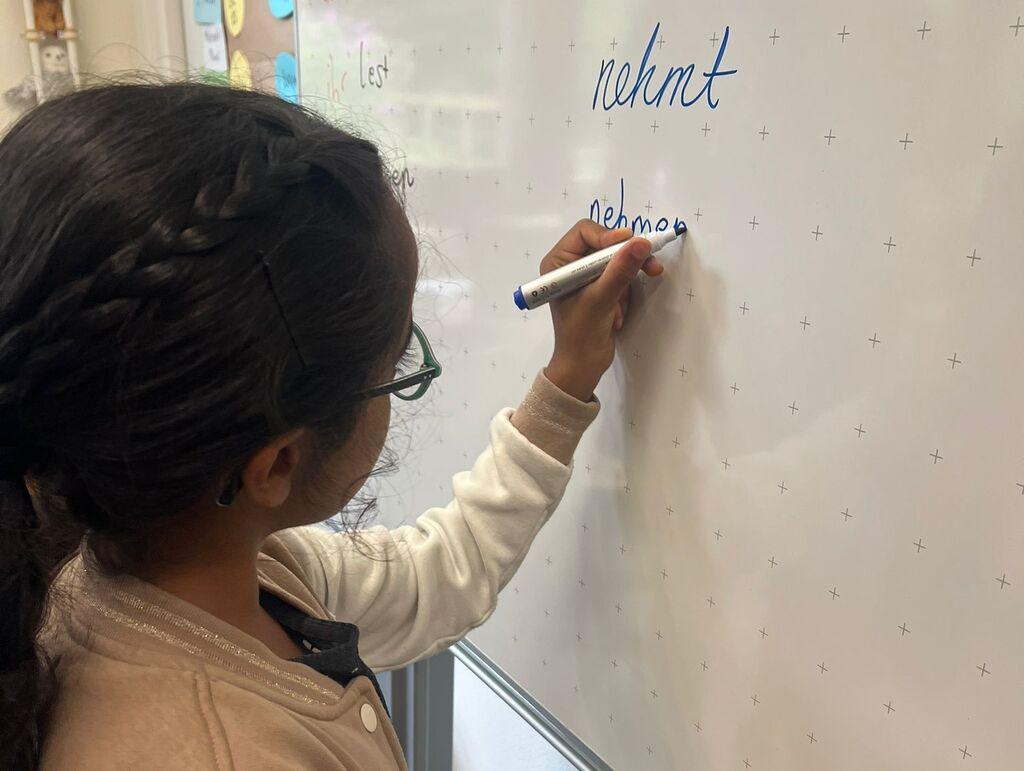 ihr lest
nehmt
nehmen